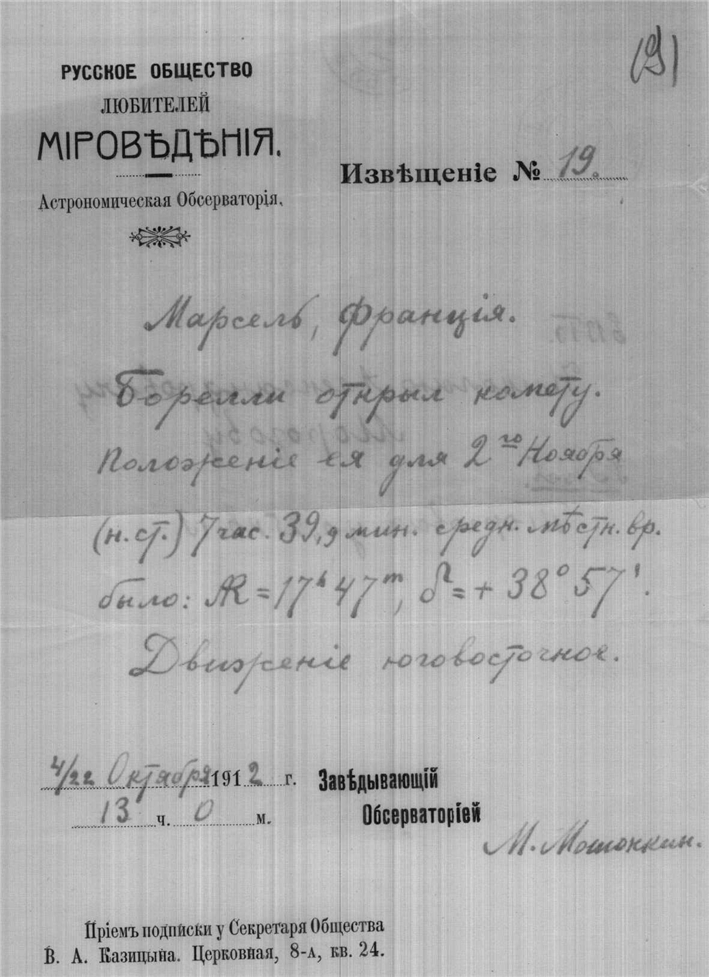 (9)
РУССКОЕ ОБЩЕСТВО
ЛЮБИТЕЛЕЙ
МІРОВѢДѢНІЯ.
Астрономическая Обсерваторія.
Извѣщеніе № 19.
Марсель, Франція.
Борелли открыл комету.
Положеніе ея для 2го Ноября
(н. ст.) 7 час. 39,9 мин. средн. мѣстн. вр.
было: AR = 17h 47m, δ = + 38° 57'.
Движеніе юговосточное.
4/22 Октября 1912 г.
13 ч. 0 м.
Завѣдывающій
Обсерваторіей
М. Мошонкин.
Пріемъ подписки у Секретаря Общества
В. А. Казицына. Церковная, 8-А, кв. 24.